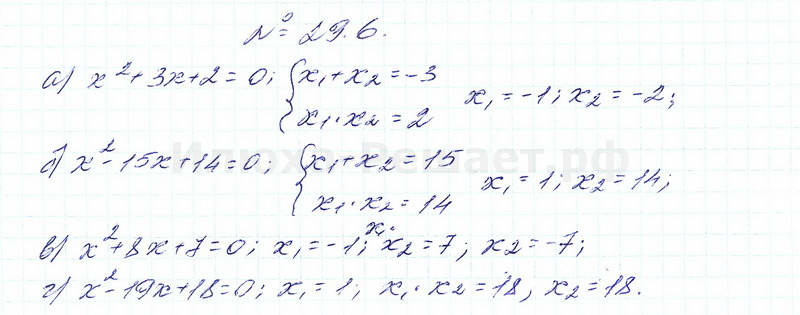 № 29.6.
а) x²+3x+2=0; {x₁+x₂=-3
x₁·x₂=2
x₁=-1; x₂=-2;
б) x²-15x+14=0; {x₁+x₂=15
x₁·x₂=14
x₁=1; x₂=14;
в) x²+8x+7=0; x₁=-1; x₁·x₂=7; x₂=-7;
г) x²-19x+18=0; x₁=1; x₁·x₂=18, x₂=18.
Илюха-Решает.рф